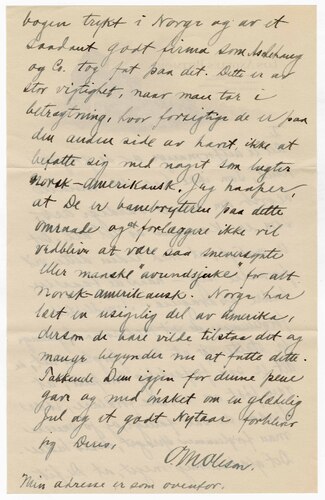 bogen trykt i Norge og av et
saadant godt firma som Aschehoug
og Co. tog fat paa det. Dette er av
stor vigtighet, naar man tar i
betragtning, hvor forsigtige de er paa
den anden side av havet, ikke at
befatte sig med noget som lugter
norsk-amerikansk. Jeg haaper,
at De er banebryterne paa dette
omraade og at forlæggere ikke vil
vedblive at være saa sneversynte
eller manske "avundsjuke" for alt
norsk-amerikansk. Norge har
lært en usigelig del av Amerika,
dersom de bare vilde tilstaa det og
mange begynder nu at fatte dette.
Takkende Dem igjen for denne pene
gave og med ønsket om en glædelig
Jul og et godt Nytaar forbliver
jeg Deres,
O. M. Oleson.
Min adresse er som ovenfor.